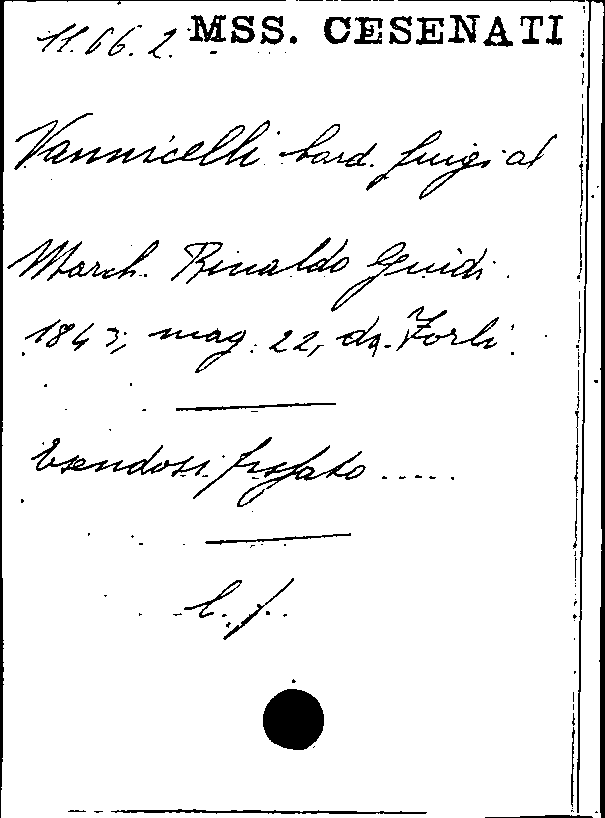 11.66.2. MSS. CESENATI
Vannicelli Card. Luigi al
March. Rinaldo Guidi.
1843, mag. 22, da Forlì.
Essendosi fissato .....
L. f.